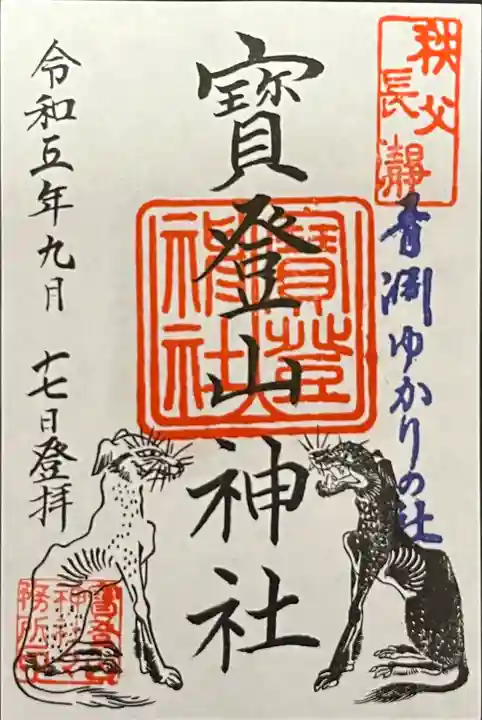 秩父
長瀞
青淵ゆかりの社
寳登山神社
寳登山
神社
令和五年九月 十七日登拝
寳登山
神社
務所印